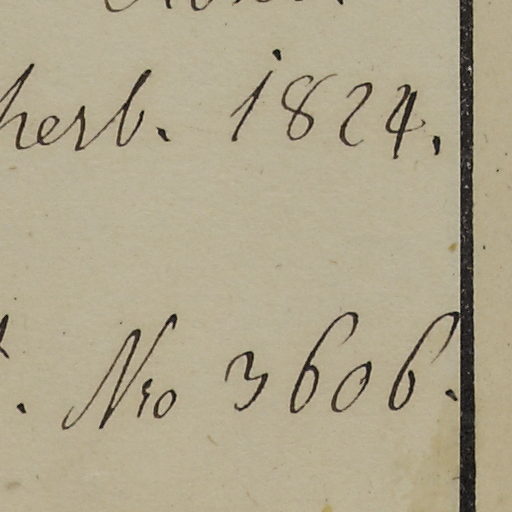 herb. 1824.
. No 3606.